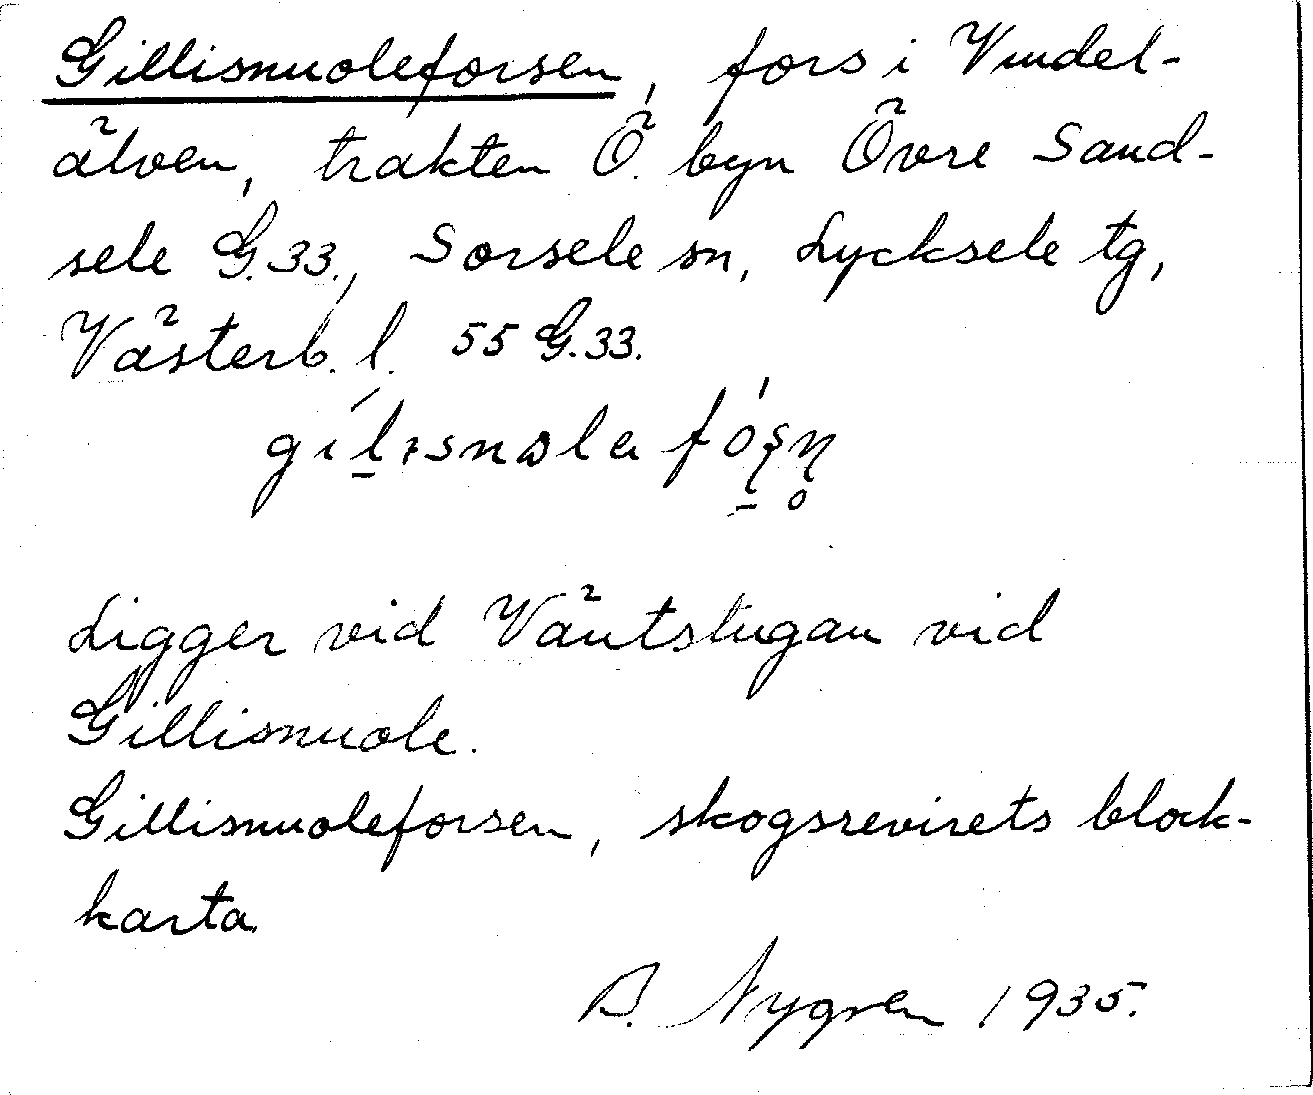 Gillisnuoleforsen, fors i Vindel-
älven, trakten Ö. byn Övre Sand-
sele G.33., Sorsele sn, Lycksele tg,
Västerb. l. 55 G.33.
Ligger vid Väntstugan vid
Gillisnuole.
Gillisnuoleforsen, skogsrevirets block-
karta.
B. Nygren 1935.